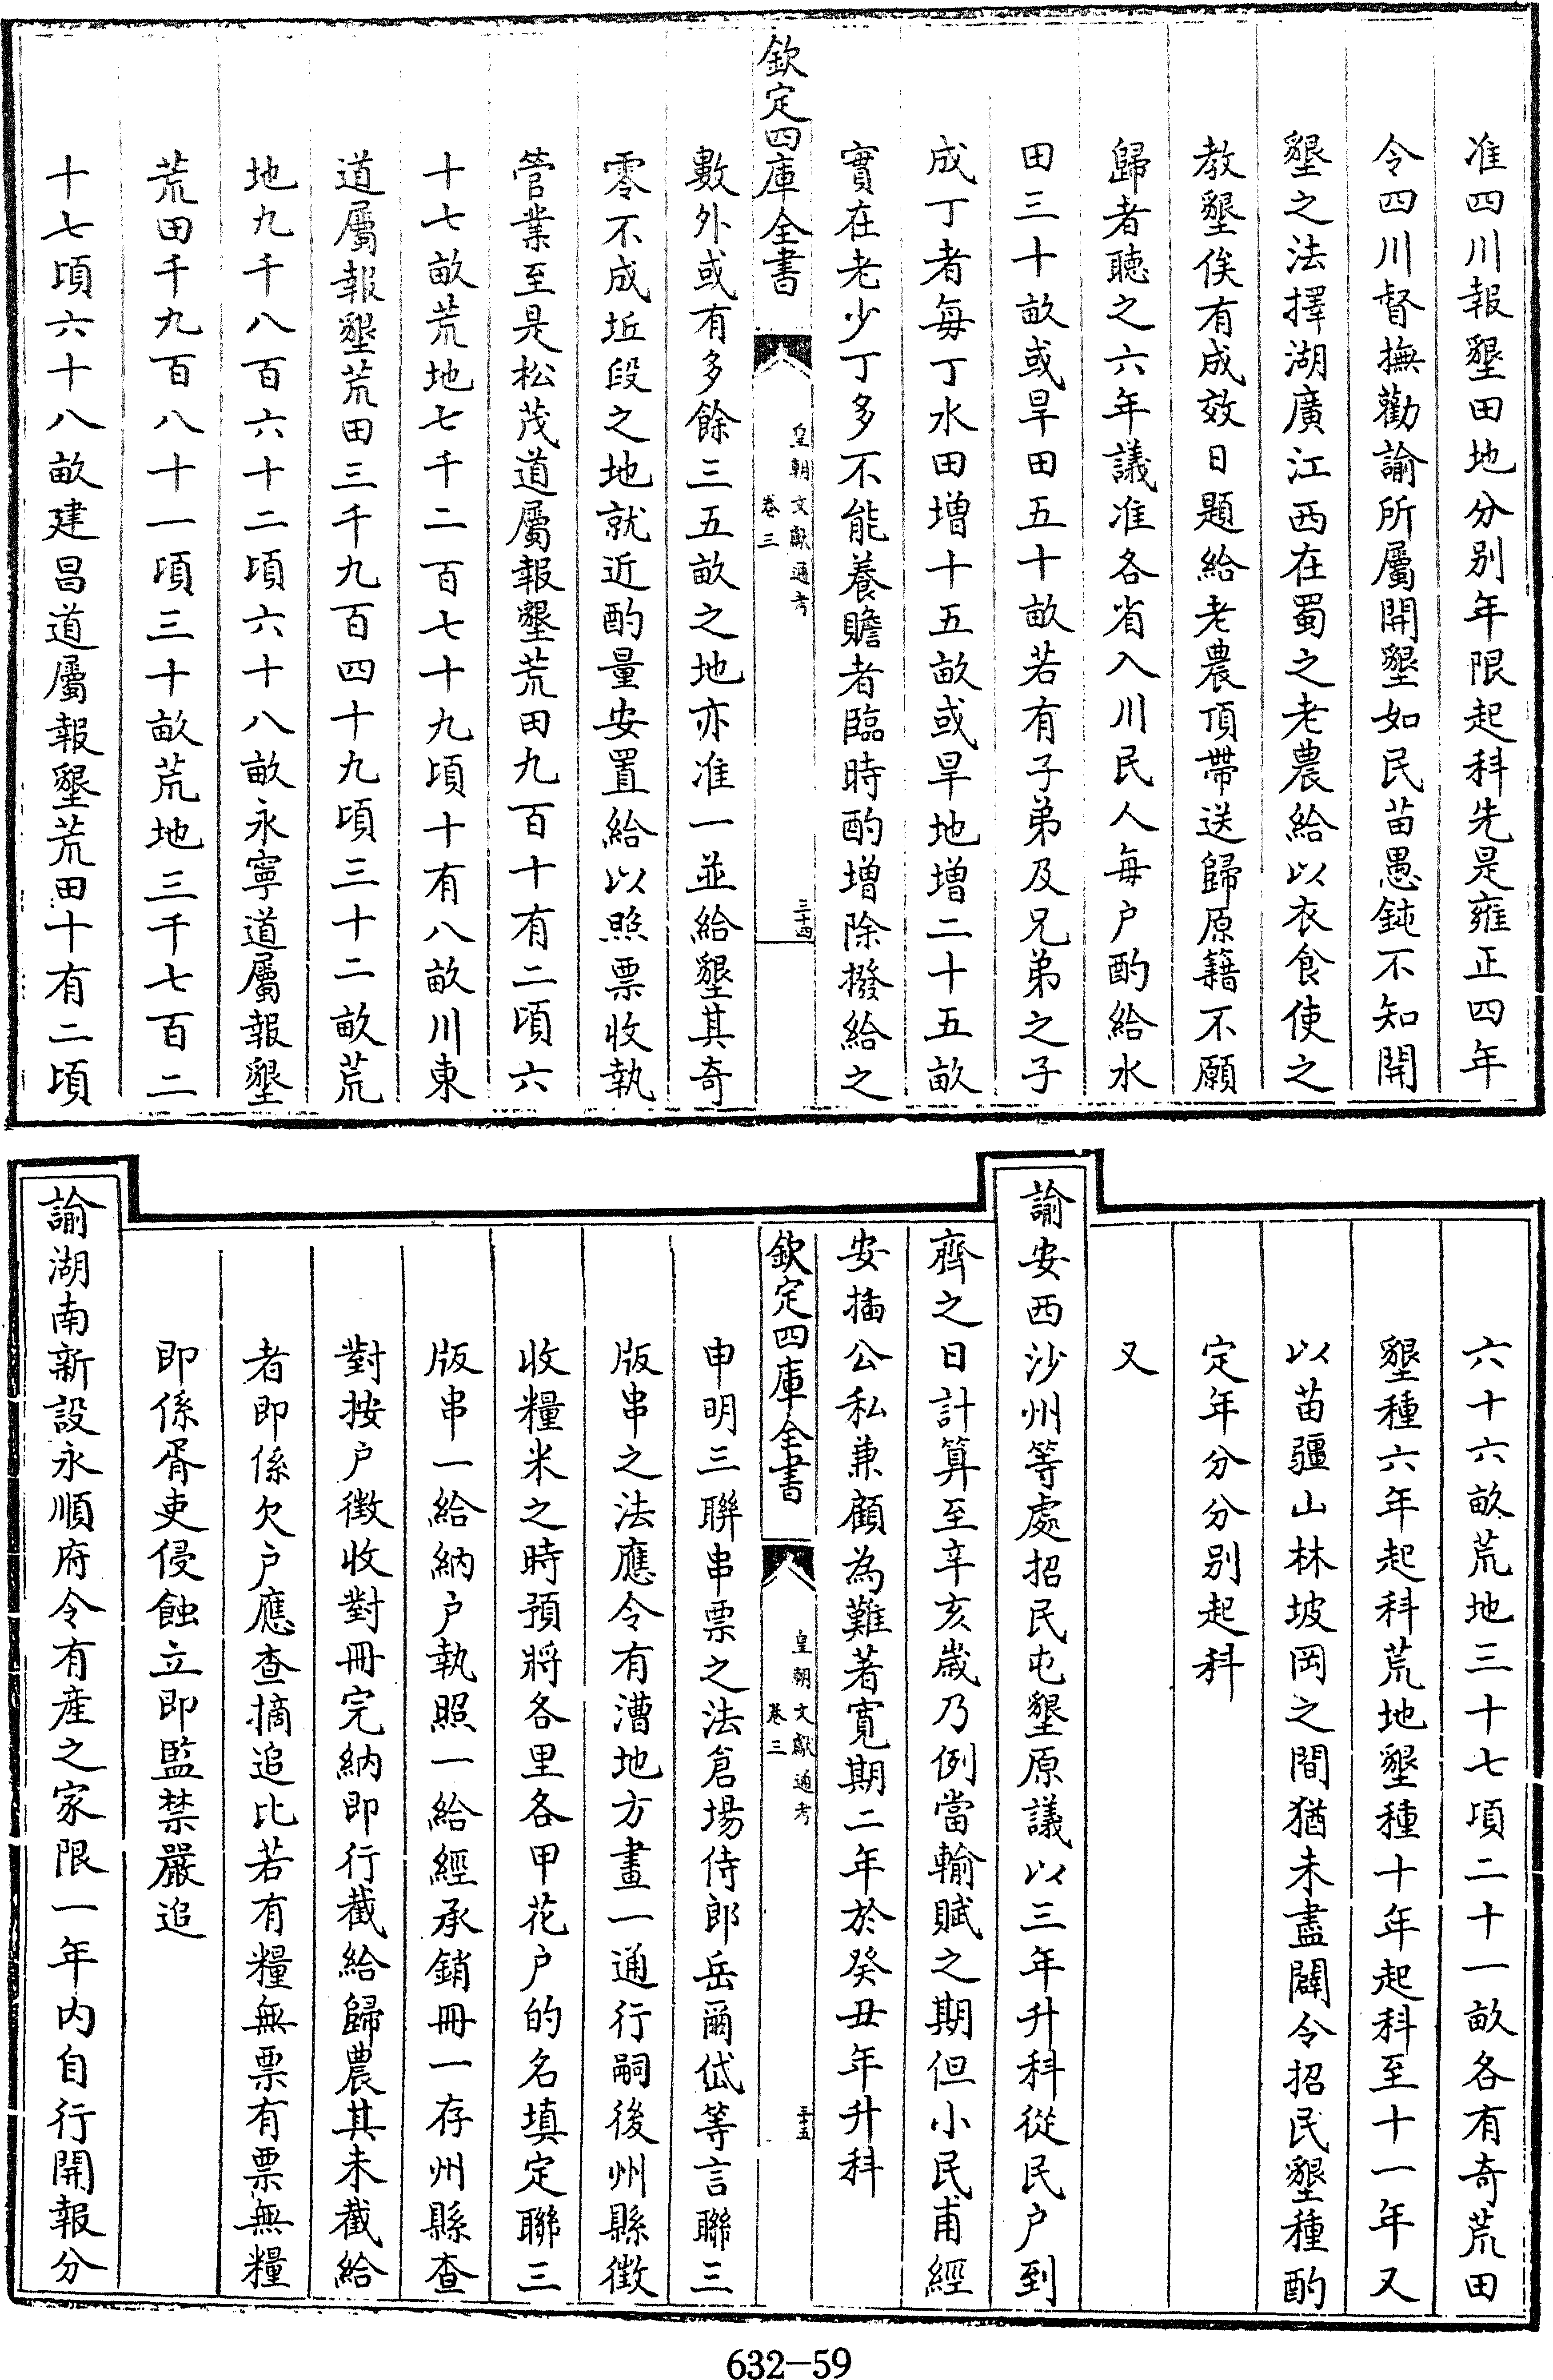 准四川報墾田地分别年限起科先是雍正四年
令四川督撫勸諭所屬開墾如民苗愚鈍不知開
墾之法擇湖廣江西在蜀之老農給以衣食使之
教墾俟有成效日題給老農頂帶送歸原籍不願
歸者聽之六年議准各省入川民人每户酌給水
田三十畝或旱田五十畝若有子弟及兄弟之子
成丁者每丁水田增十五畝或旱地增二十五畝
實在老少丁多不能養贍者臨時酌增除撥給之
欽定四庫全書
皇朝文獻通考
卷三
三十四
數外或有多餘三五畝之地亦准一並給墾其奇
零不成坵段之地就近酌量安置給以照票收執
管業至是松茂道屬報墾荒田九百十有二頃六
十七畝荒地七千二百七十九頃十有八畝川東
道屬報墾荒田三千九百四十九頃三十二畝荒
地九千八百六十二頃六十八畝永寧道屬報墾
荒田千九百八十一頃三十畝荒地三千七百二
十七頃六十八畝建昌道屬報墾荒田十有二頃
六十六畝荒地三十七頃二十一畝各有奇荒田
墾種六年起科荒地墾種十年起科至十一年又
以苗疆山林坡岡之間猶未盡闢令招民墾種酌
定年分分别起科
又
諭安西沙州等處招民屯墾原議以三年升科從民户到
齊之日計算至辛亥歲乃例當輸賦之期但小民甫經
安插公私兼顧為難著寛期二年於癸丑年升科
欽定四庫全書
皇朝文獻通考
卷三
三十五
申明三聯串票之法倉場侍郎岳爾岱等言聯三
版串之法應令有漕地方畫一通行嗣後州縣徵
收糧米之時預將各里各甲花户的名填定聯三
版串一給納户執照一給經承銷冊一存州縣查
對按户徵收對冊完納即行截給歸農其未截給
者即係欠户應查摘追比若有糧無票有票無糧
即係胥吏侵蝕立即監禁嚴追
諭湖南新設永順府令有産之家限一年内自行開報分
632-59